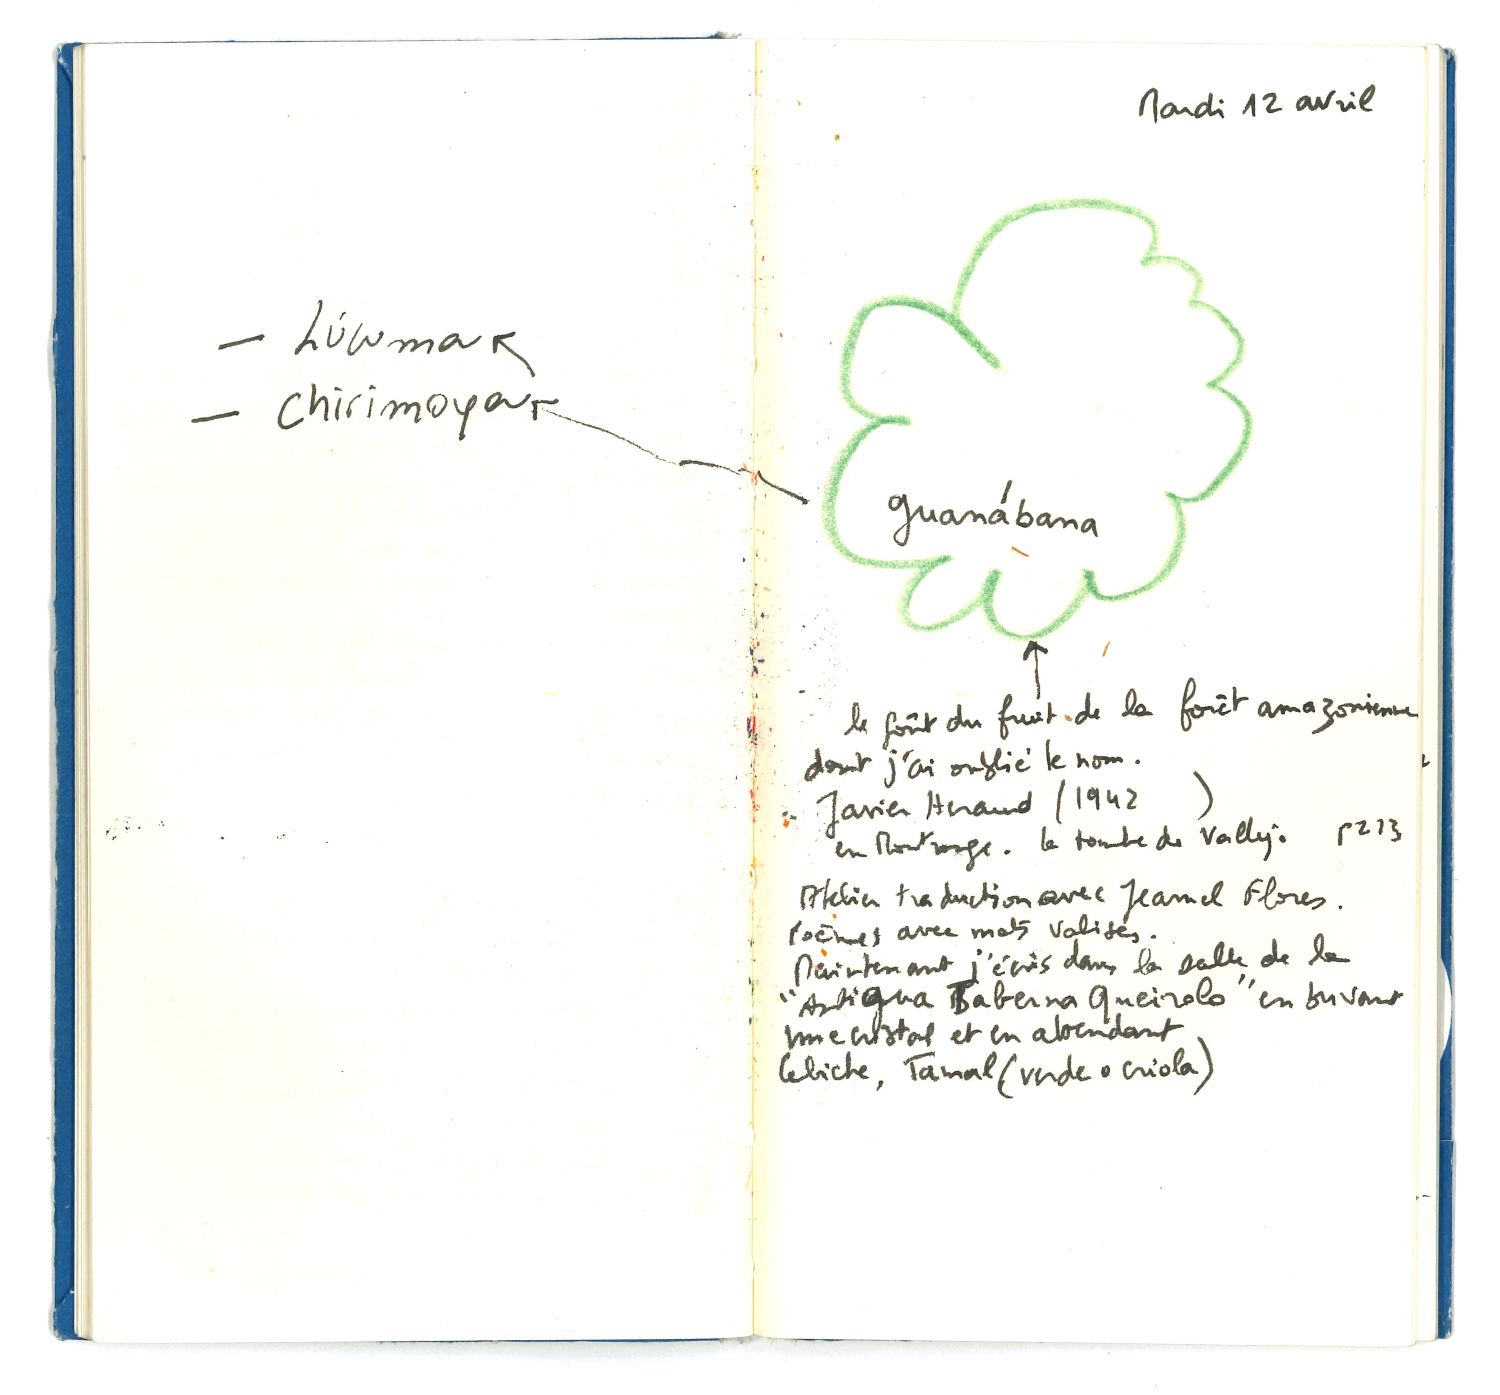 - Lúcuma
- Chirimoya
Mardi 12 avril
guanábana
le goût du fruit de la forêt amazonienne
dont j'ai oublié le nom.
Javier Heraud (1942 )
en Montrouge. la tombe de Vallejo p213
Atelier traduction avec Jeamel Flores.
Poèmes avec mots valises.
Maintenant j'écris dans la salle de la
"Antigua Taberna Queirolo" en buvant
une cristal et en attendant
Cebiche, Tamal (verde o criola)